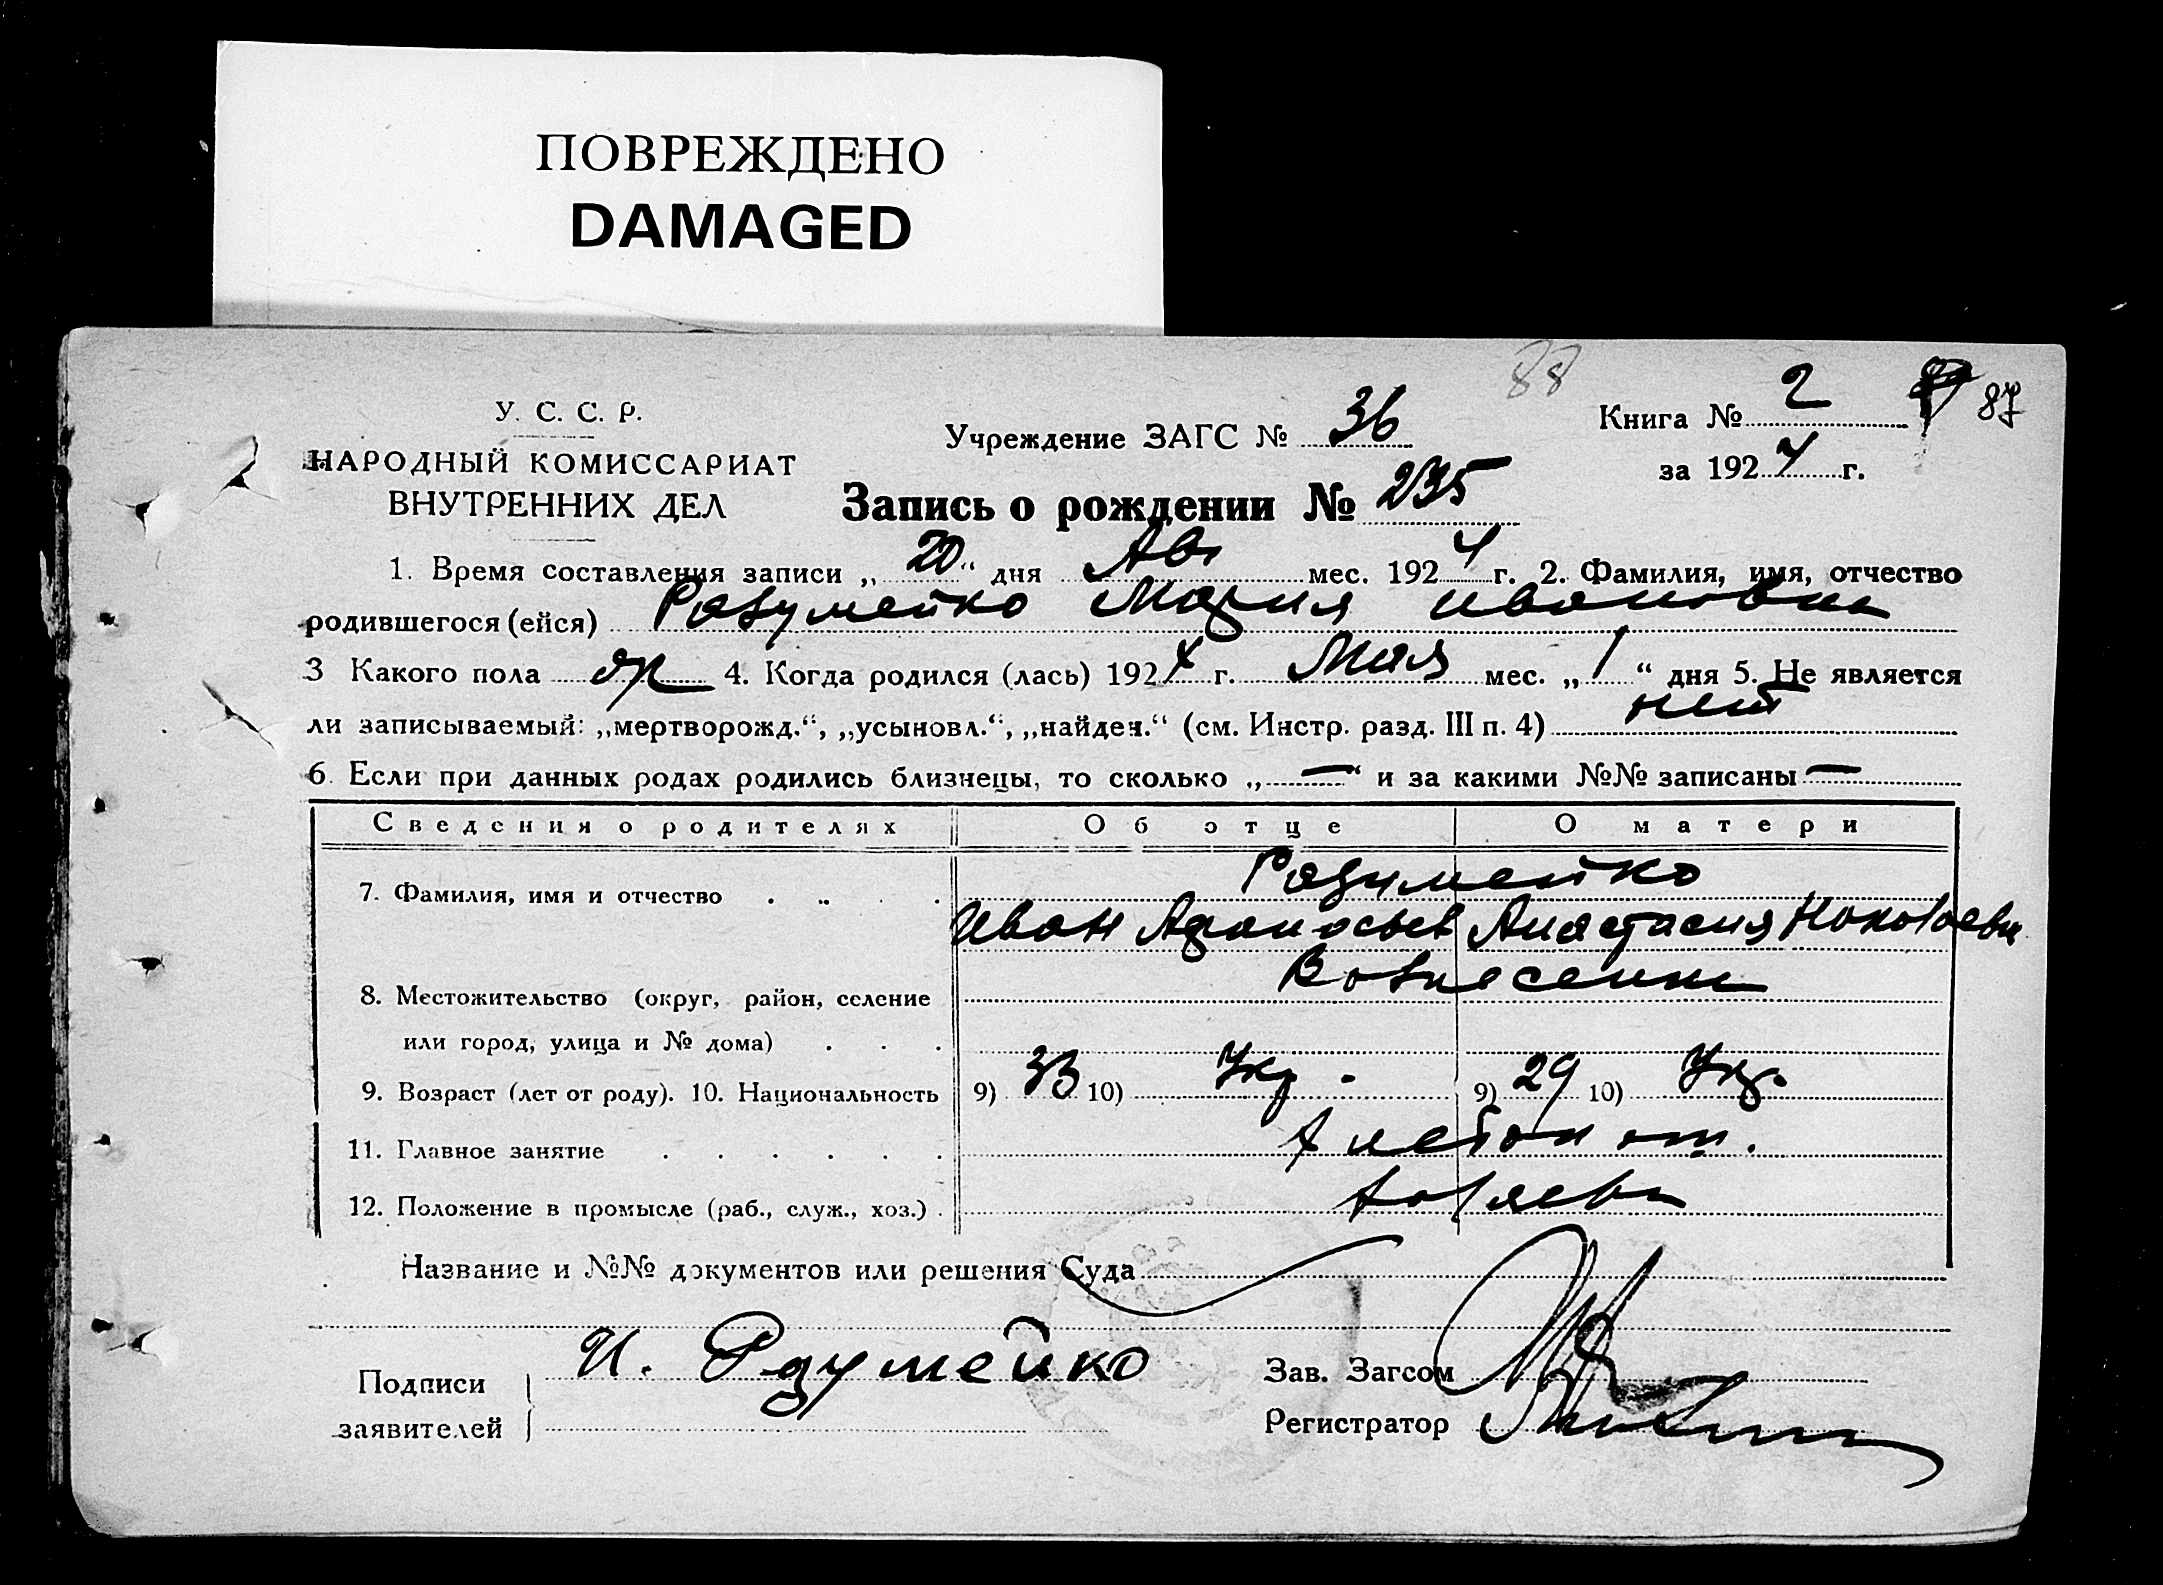 ПОВРЕЖДЕНО
DAMAGED
88
У. С. С. Р.
НАРОДНЫЙ КОМИССАРИАТ
ВНУТРЕННИХ ДЕЛ
Учреждение ЗАГС № 36
Книга № 2 87
за 1924 г.
Запись о рождении № 235
1. Время составления записи „20“ дня Авг мес. 1924 г. 2. Фамилия, имя, отчество
родившегося (ейся) Разумейко Мария Ивановна
3 Какого пола 4. Когда родился (лась) 1924 г. Мая мес. „1“ дня 5. Не является
ли записываемый: „мертворожд.“, „усыновл.“, „найден.“ (см. Инстр. разд. III п. 4) нет
6. Если при данных родах родились близнецы, то сколько „—“ и за какими №№ записаны —
Сведения о родителях Об отце О матери
Разумейко
7. Фамилия, имя и отчество
Иван Афанасьев Анастасия
8. Местожительство (округ, район, селение
или город, улица и № дома)
9. Возраст (лет от роду). 10. Национальность 9) 33 10) Укр. 9) 29 10) Укр.
11. Главное занятие
12. Положение в промысле (раб., служ., хоз.)
Название и №№ документов или решения Суда
Подписи
заявителей
И. Разумейко
Зав. Загсом
Регистратор